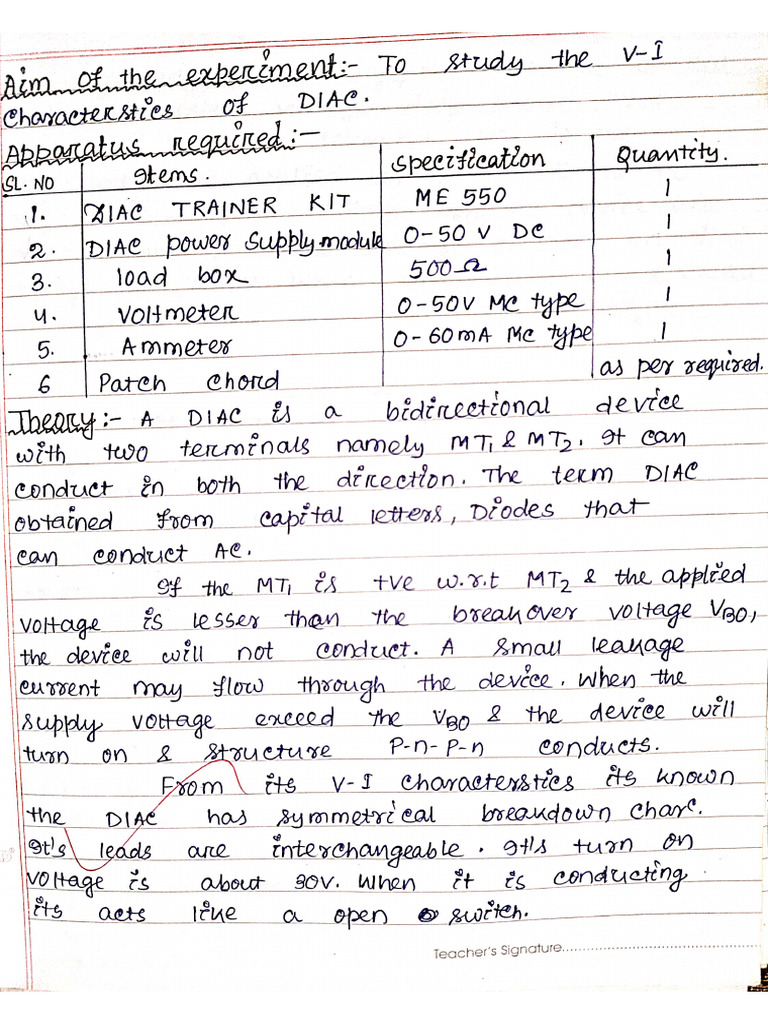 Aim of the experiment:- To study the V-I
Characterstics of DIAC.
Apparatus required:-
SL. NO Items. Specification Quantity.
1. DIAC TRAINER KIT ME 550 1
2. DIAC power supply module 0-50 V DC 1
3. load box 500Ω 1
4. Voltmeter 0-50V MC type 1
5. Ammeter 0-60mA MC type 1
6 Patch chord as per required.
Theory:- A DIAC is a bidirectional device
with two terminals namely MT1 & MT2. It can
conduct in both the direction. The term DIAC
obtained from capital letters, Diodes that
can conduct AC.
If the MT1 is +ve w.r.t MT2 & the applied
voltage is lesser than the breakover voltage VBO,
the device will not conduct. A small leakage
current may flow through the device. When the
supply voltage exceed the VBO & the device will
turn on & structure P-n-P-n conducts.
From its V-I characterstics its known
the DIAC has symmetrical breakdown charc.
It's leads are interchangeable. It's turn on
voltage is about 30V. When it is conducting
its acts like a open switch.
Teacher's Signature